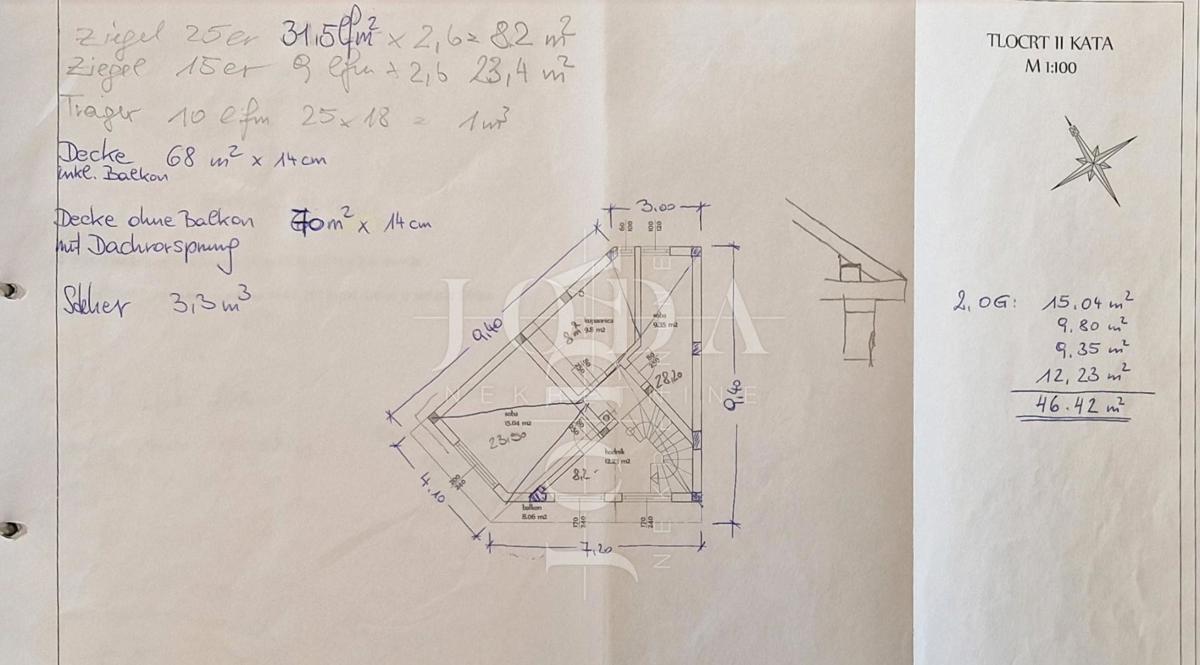 Ziegel 25er 31,5 lfm² x 2,6 = 82 m²
Ziegel 15er 9 lfm x 2,6 23,4 m²
Träger 10 lfm 25 x 18 = 1 m³
Decke 68 m² x 14 cm
inkl. Balkon
Decke ohne Balkon 70 m² x 14 cm
mit Dachvorsprung
3,3 m³
TLOCRT II KATA
M 1:100
2, OG: 15.04 m²
9.80 m²
9.35 m²
12,23 m²
46.42 m²
3.00
60
100
100
120
9,40
kupaonica
9.8 m2
soba
9.35 m2
28,20
9,40
soba
15.04 m2
23,50
hodnik
12.23 m2
8,2
4.10
200
240
balkon
8.06 m2
170
240
170
240
7,20
JODA
NEKRETNINE